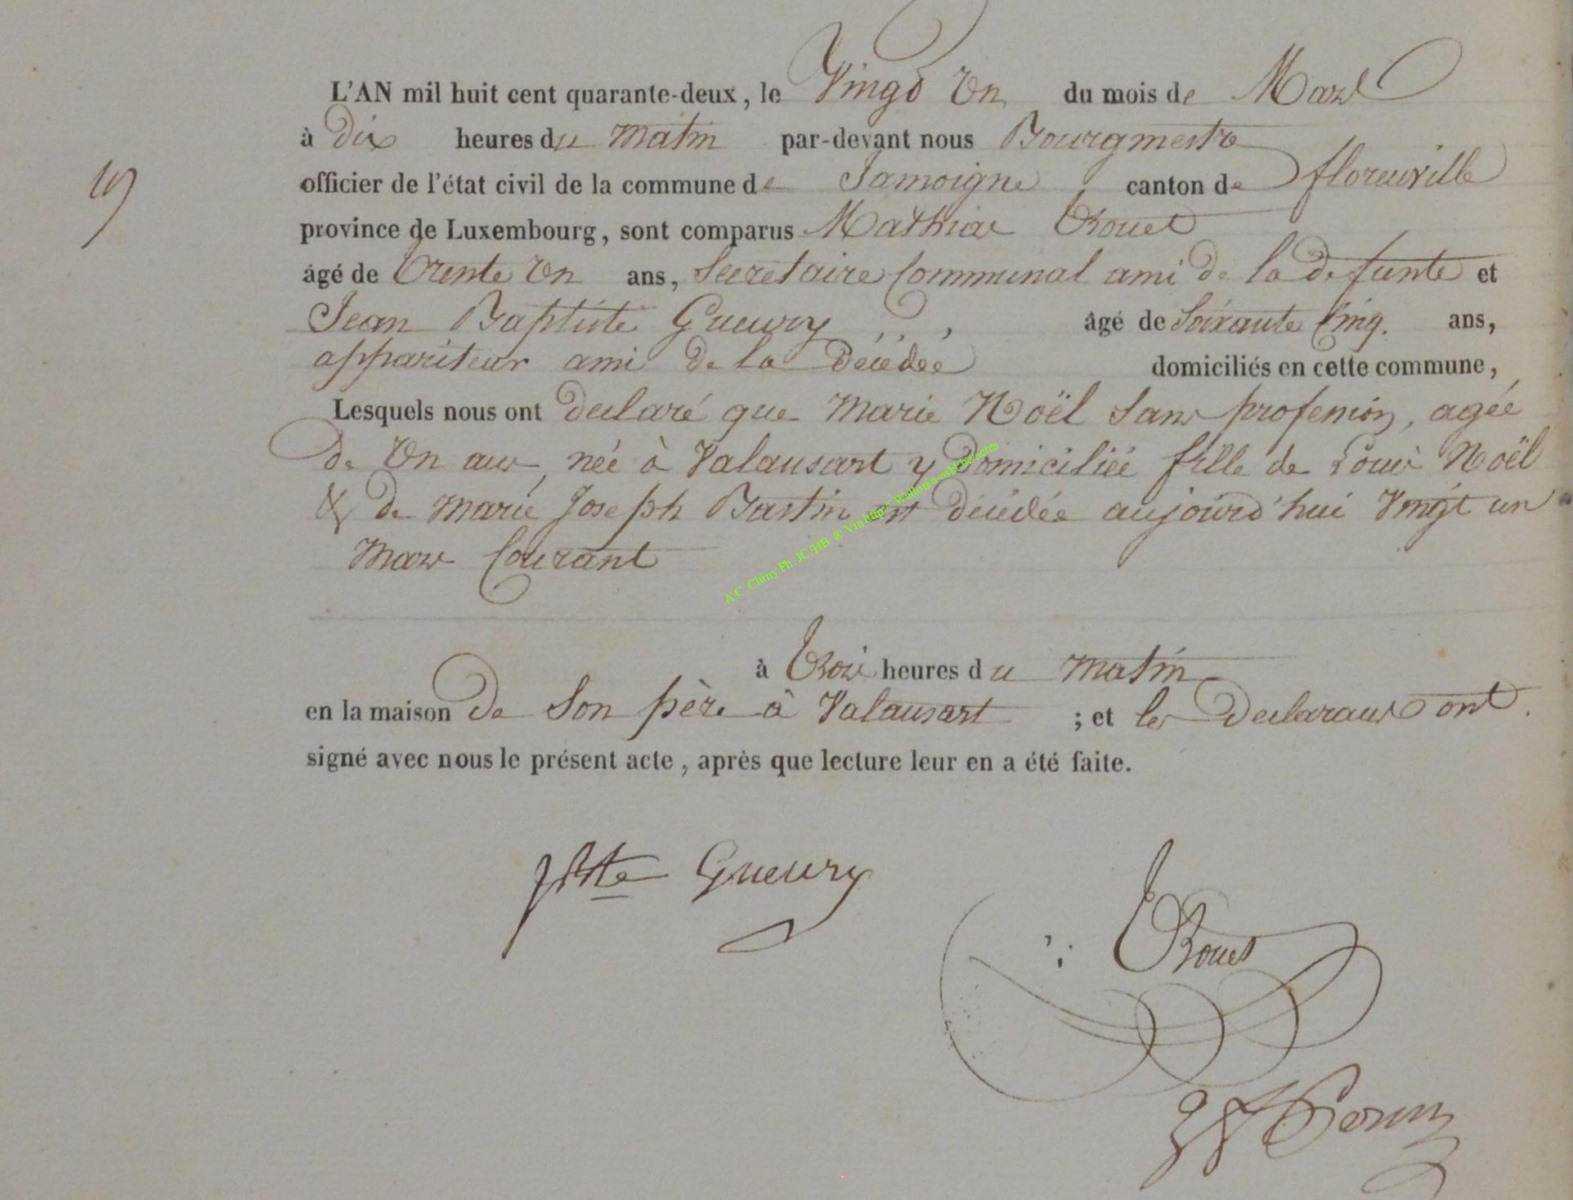 L'AN mil huit cent quarante-deux, le Vingt Un du mois de Mars
à Dix heures du matin par-devant nous Bourgmestre
officier de l'état civil de la commune de Jamoigne canton de florenville
province de Luxembourg, sont comparus Mathias
âgé de trente Un ans, Secrétaire Communal ami de la defunte et
Jean Baptiste Gueury âgé de Soixante Cinq. ans,
appariteur ami de la Décédée domiciliés en cette commune,
Lesquels nous ont declaré que Marie Noël Sans profession, agée
de Un ans, née à Valansart y domiciliée fille de Louis Noël
& de Marie Joseph Bastin est décédée aujourd'hui Vingt un
Mars Courant
à trois heures du matin
en la maison de Son père à Valansart ; et les Declarans ont
signé avec nous le présent acte, après que lecture leur en a été faite.
JBte Gueury